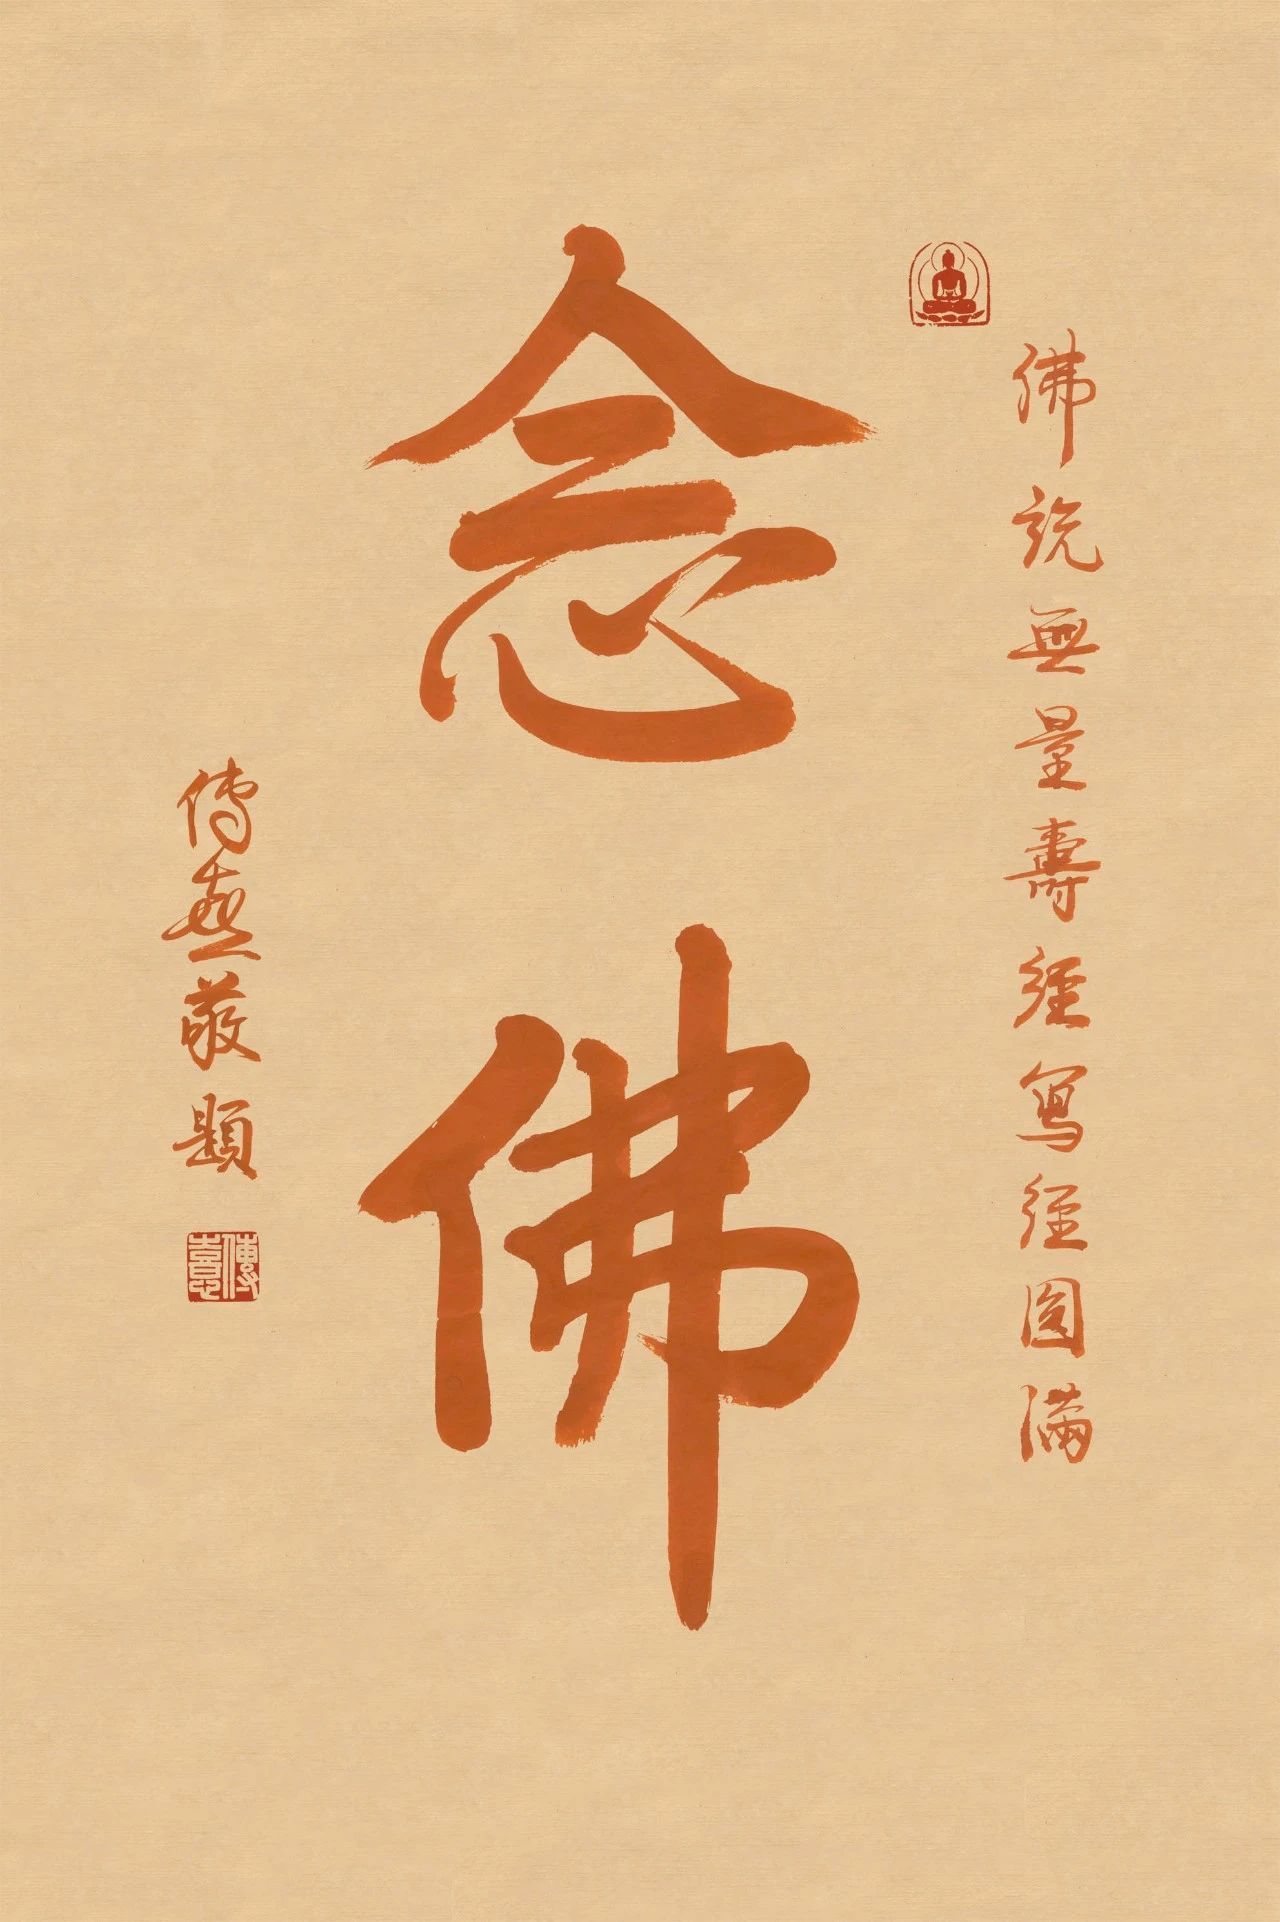 佛説無量壽經寫經圓滿
念佛
傳喜敬題
傳喜